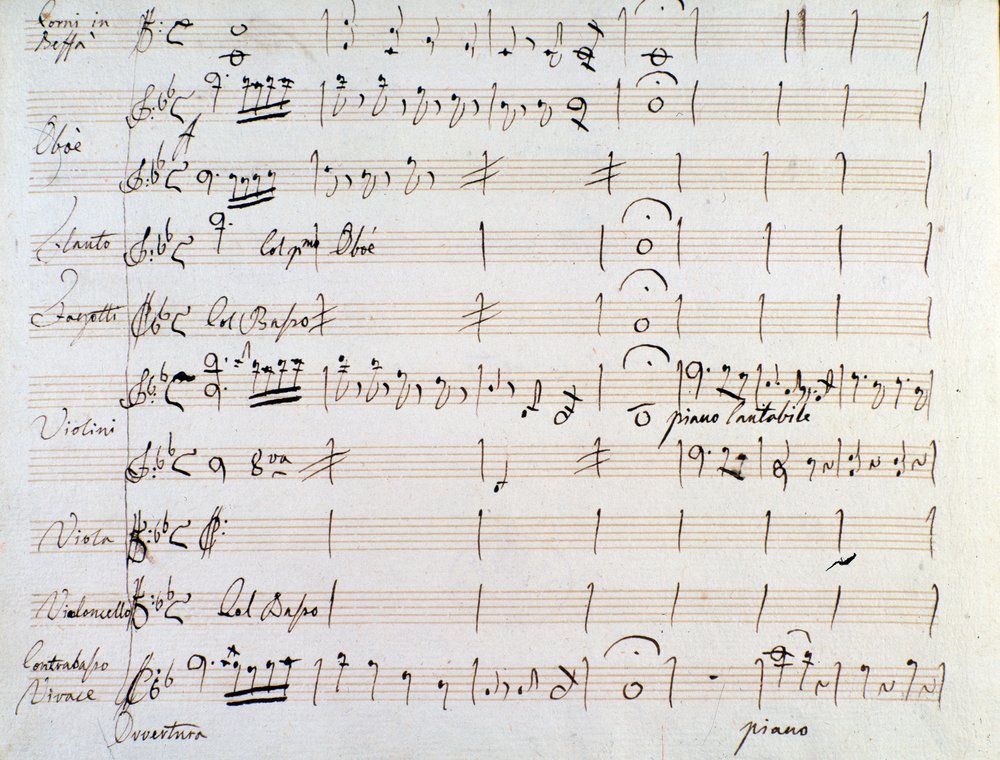 Corni in
Beffà
Oboè
A
Flauto
Col pmo Oboé
Fagotti
Col Basso
Violini
piano Cantabile
8va
Viola
Violoncello
Col Basso
Contrabasso
Vivace
Ouvertura
piano